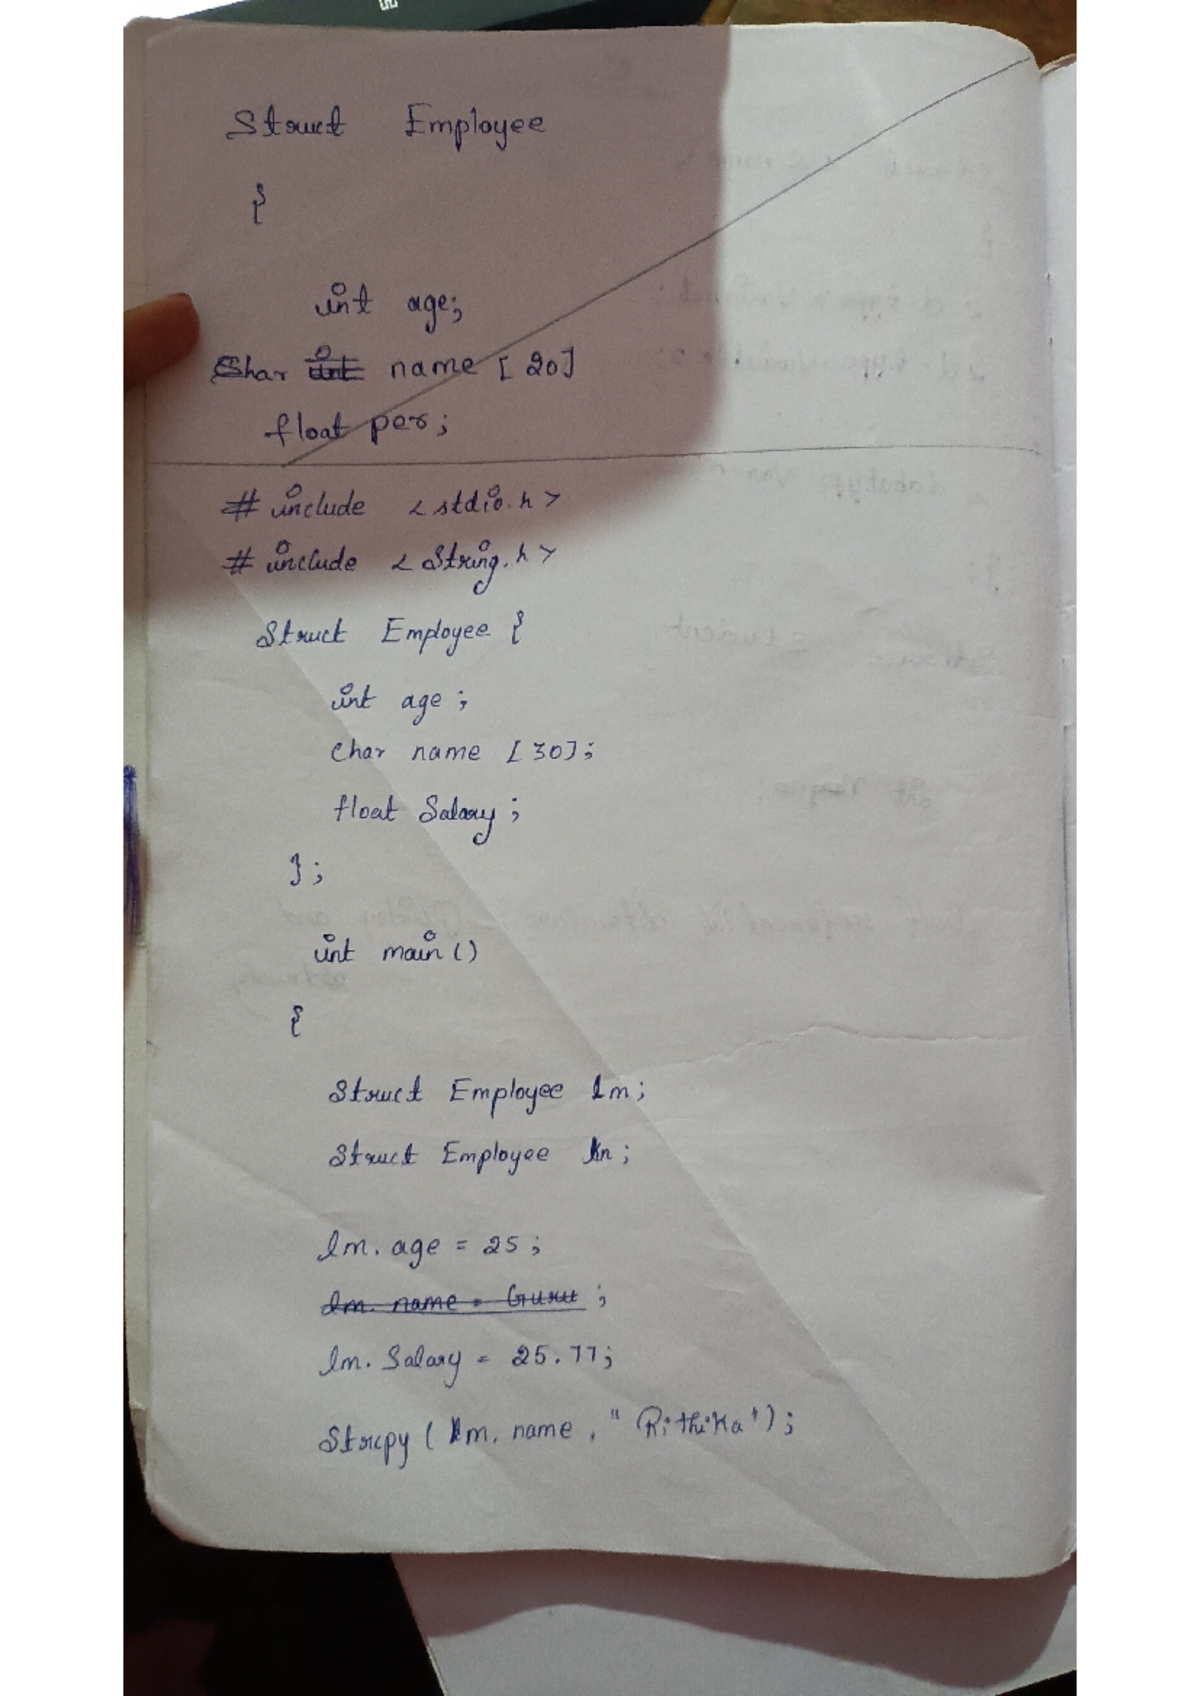 Struct Employee
{
int age;
Char int name [20]
float per;
# include <stdio.h>
# include <String.h>
Struct Employee {
int age ;
char name [30];
float Salary ;
};
int main()
{
Struct Employee lm;
Struct Employee kn;
lm. age = 25 ;
lm. name = Guru ;
lm. Salary = 25.77;
Strcpy ( lm. name , "Rithika");